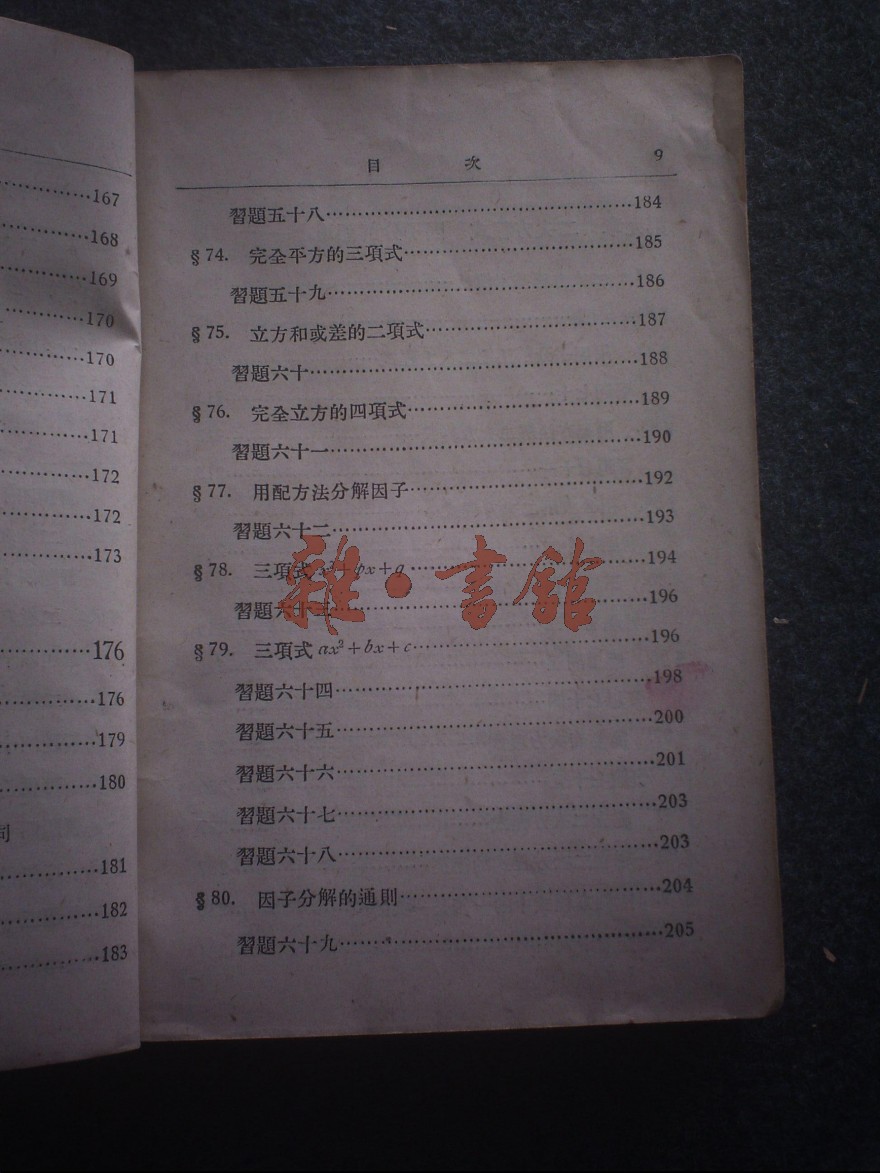 167
168
169
170
170
171
171
172
172
173
176
176
179
180
181
182
183
目 次 9
習題五十八……184
§74. 完全平方的三項式……185
習題五十九……186
§75. 立方和或差的二項式……187
習題六十……188
§76. 完全立方的四項式……189
習題六十一……190
§77. 用配方法分解因子……192
習題六十二……193
§78. 三項式 x²+px+q……194
習題六十三……196
§79. 三項式 ax²+bx+c……196
習題六十四……198
習題六十五……200
習題六十六……201
習題六十七……203
習題六十八……203
§80. 因子分解的通則……204
習題六十九……205
雜·書館